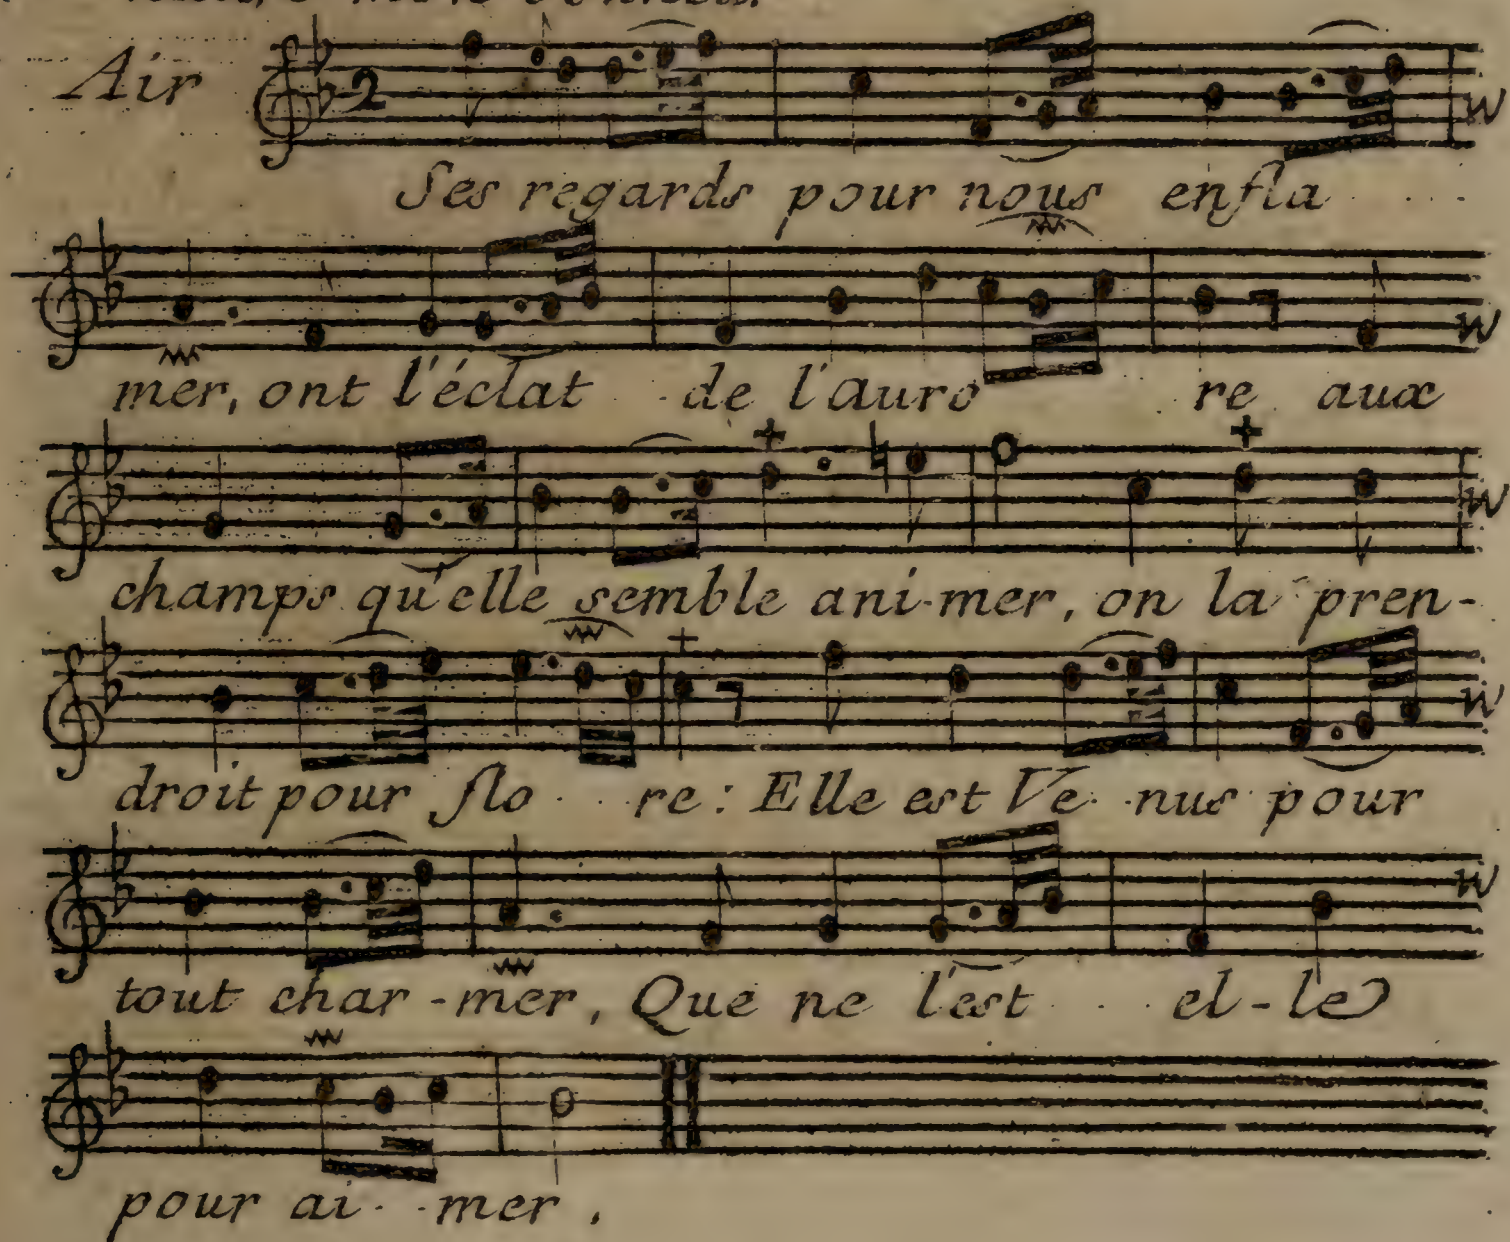 Air
2
Ses regards pour nous enfla . . .
mer, ont l'éclat . de l'auro . re aux
champs qu'elle semble ani-mer, on la pren-
droit pour flo . . re : Elle est Ve . nus pour
tout char-mer, Que ne l'est . . el-le
pour ai . . mer .